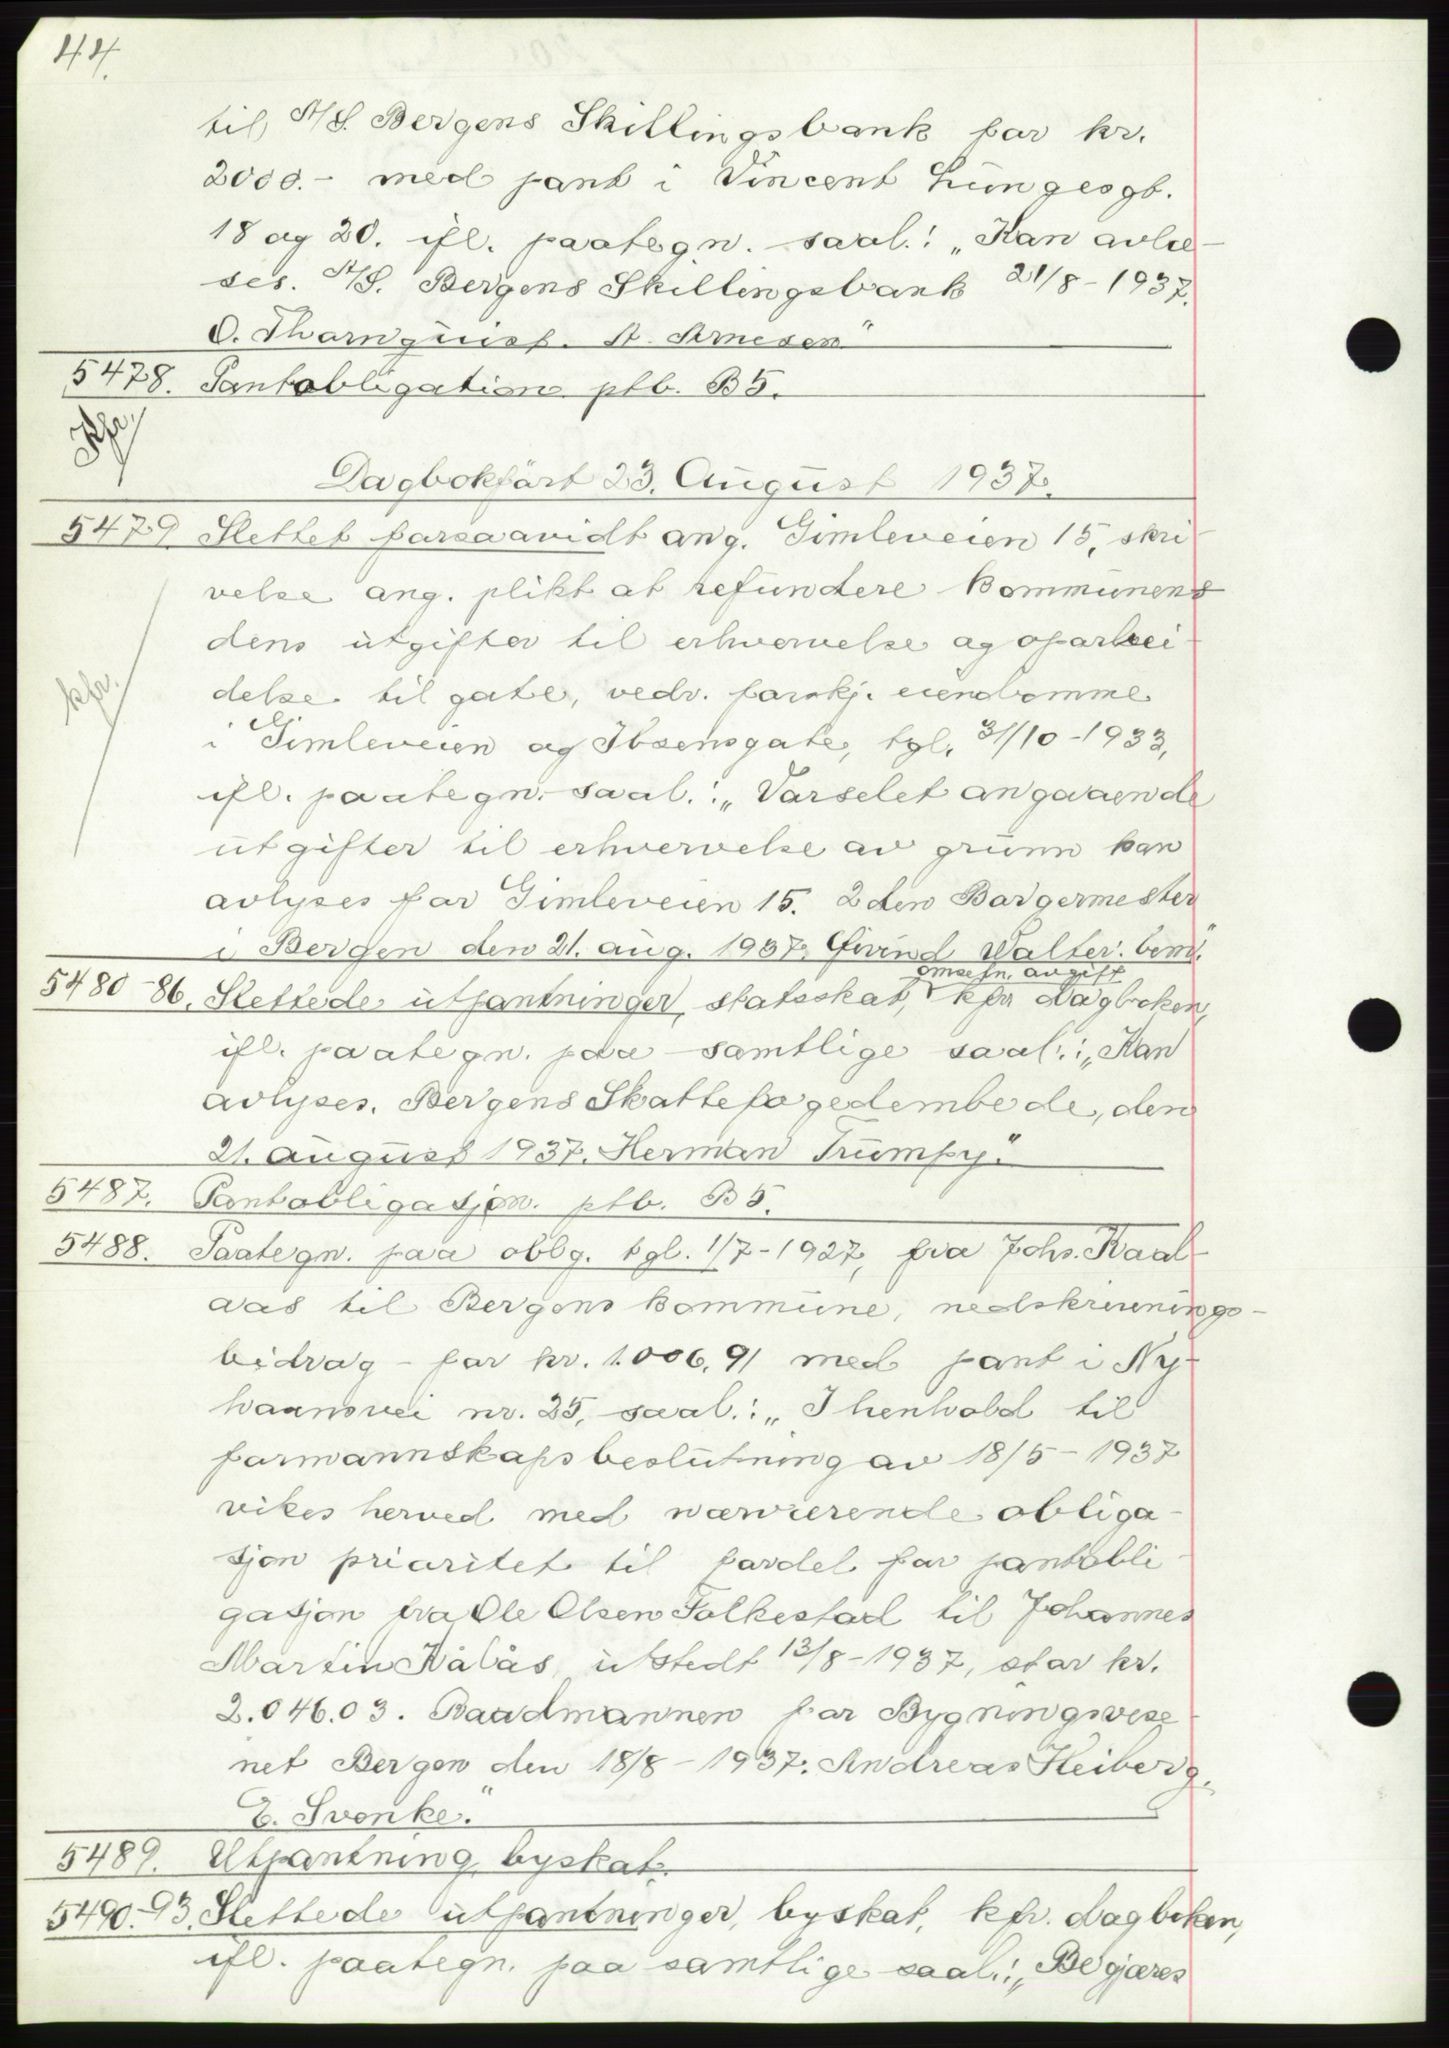 44.
til A/S. Bergens Skillingsbank for kr.
2000.- med pant i Vincent Lungesgt.
18 og 20. ifl. paategn. saal.: „Kan avlæ-
ses. A/S. Bergens Skillingsbank 21/8-1937.
O. Thornquist. A. Arnesen"
5478. Pantobligation ptb. B5.
Kfr.
Dagbokført 23. August 1937.
5479 Slettet forsaavidt ang. Gimleveien 15, skri-
velse ang. plikt at refundere kommunens
dens utgifter til erhvervelse og oparbei-
kfr.
delse til gate, vedr. forskj. eiendomme
i Gimleveien og Ibsensgate, tgl. 31/10-1933,
ifl. paategn. saal.: „Varselet angaaende
utgifter til erhvervelse av grunn kan
avlyses for Gimleveien 15. 2den Borgermester
i Bergen den 21. aug. 1937. Eivind Walter. bem."
omsetn. avgift
5480-86. Slettede utpantninger, statsskat, kfr dagboken,
ifl. paategn. paa samtlige saal.: „Kan
avlyses. Bergens Skattefogedembede, den
21. august 1937. Herman Trumpy."
5487. Pantobligasjon. ptb. B5.
5488. Paategn. paa oblg. tgl. 1/7-1927, fra Johs. Kaal-
aas til Bergens kommune, nedskrivnings-
bidrag - for kr. 1.006,91 med pant i Ny-
havnsvei nr. 25, saal.: „I henhold til
formannskapsbeslutning av 18/5-1937
vikes herved med nærværende obliga-
sjon prioritet til fordel for pantobli-
gasjon fra Ole Olsen Folkestad til Johannes
Martin Kålås utstedt 13/8-1937, stor kr.
2.046.03. Raadmannen for Bygningsvese-
net Bergen den 18/8-1937. Andreas Heiberg.
E. Svonke."
5489. Utpantning, byskat.
5490.-93. Slettede utpantninger, byskat, kfr. dagboken,
ifl. paategn. paa samtlige saal.: „Begjæres